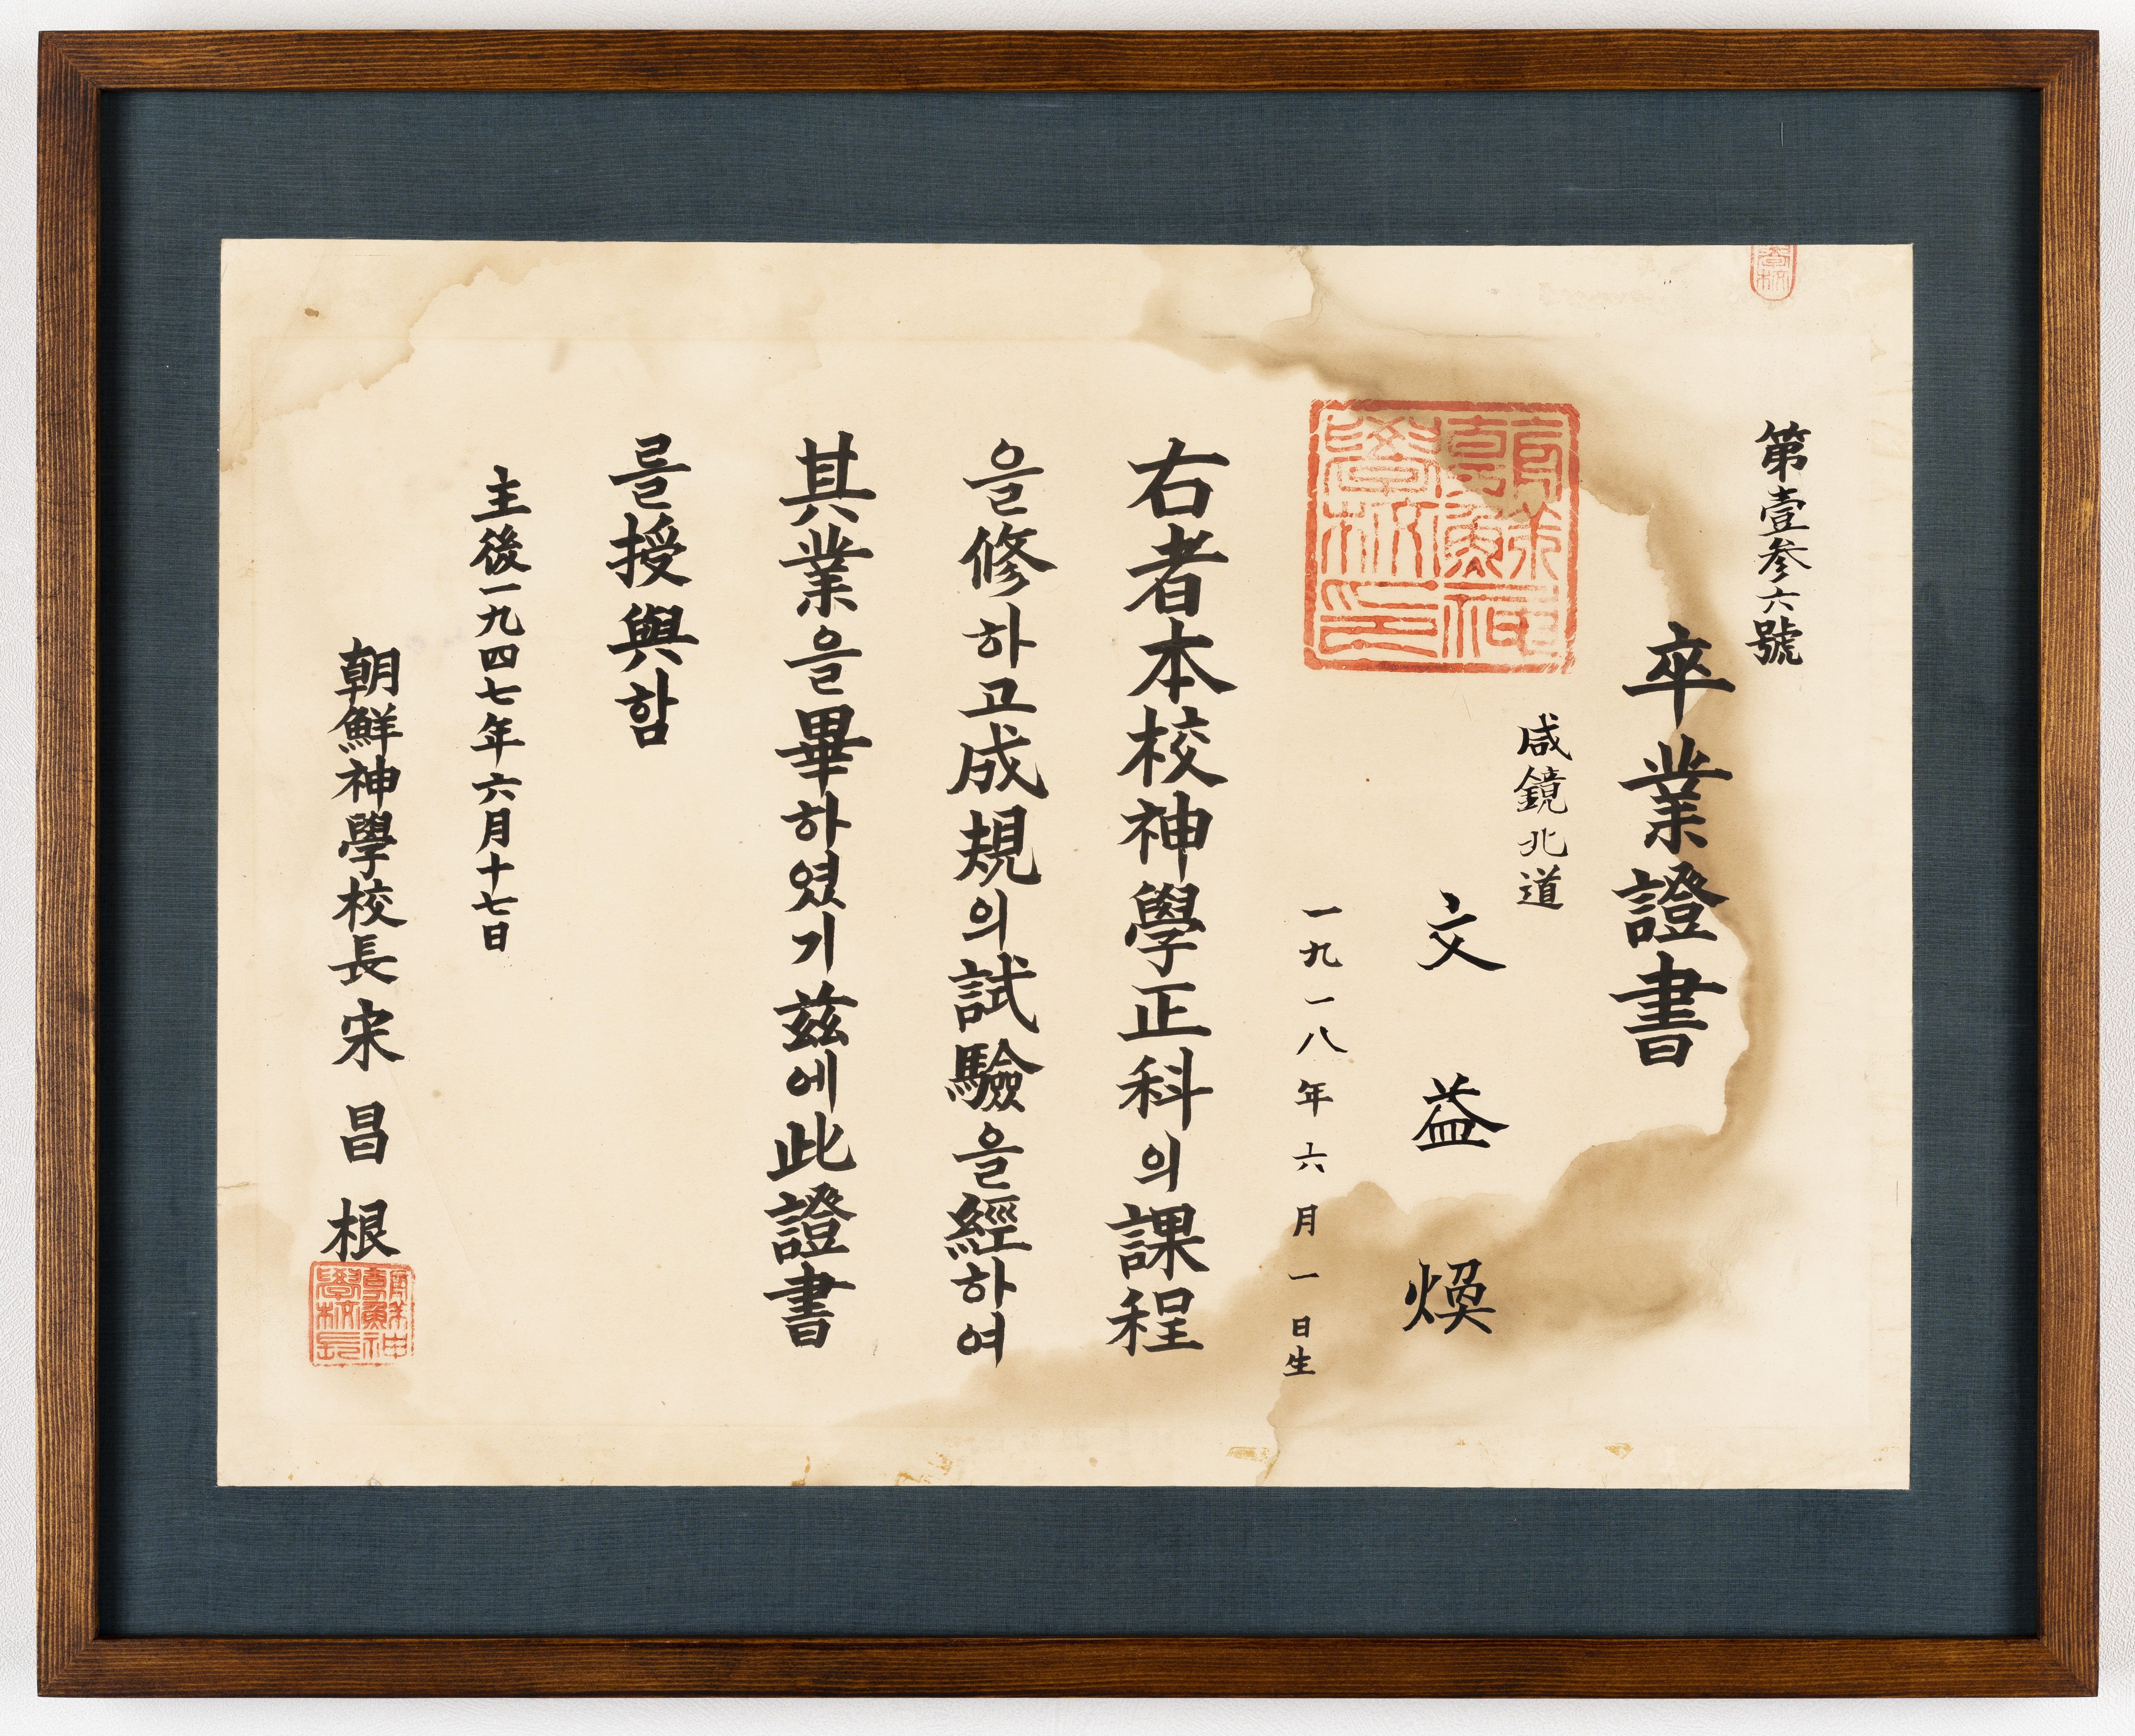 第壹參六號
卒業證書
咸鏡北道
文益煥
一九一八年六月一日生
朝鮮神學校印
右者本校神學正科의課程
을修하고成規의試驗을經하여
其業을畢하였기玆에此證書
를授與함
主後一九四七年六月十七日
朝鮮神學校長宋昌根
朝鮮神學校長